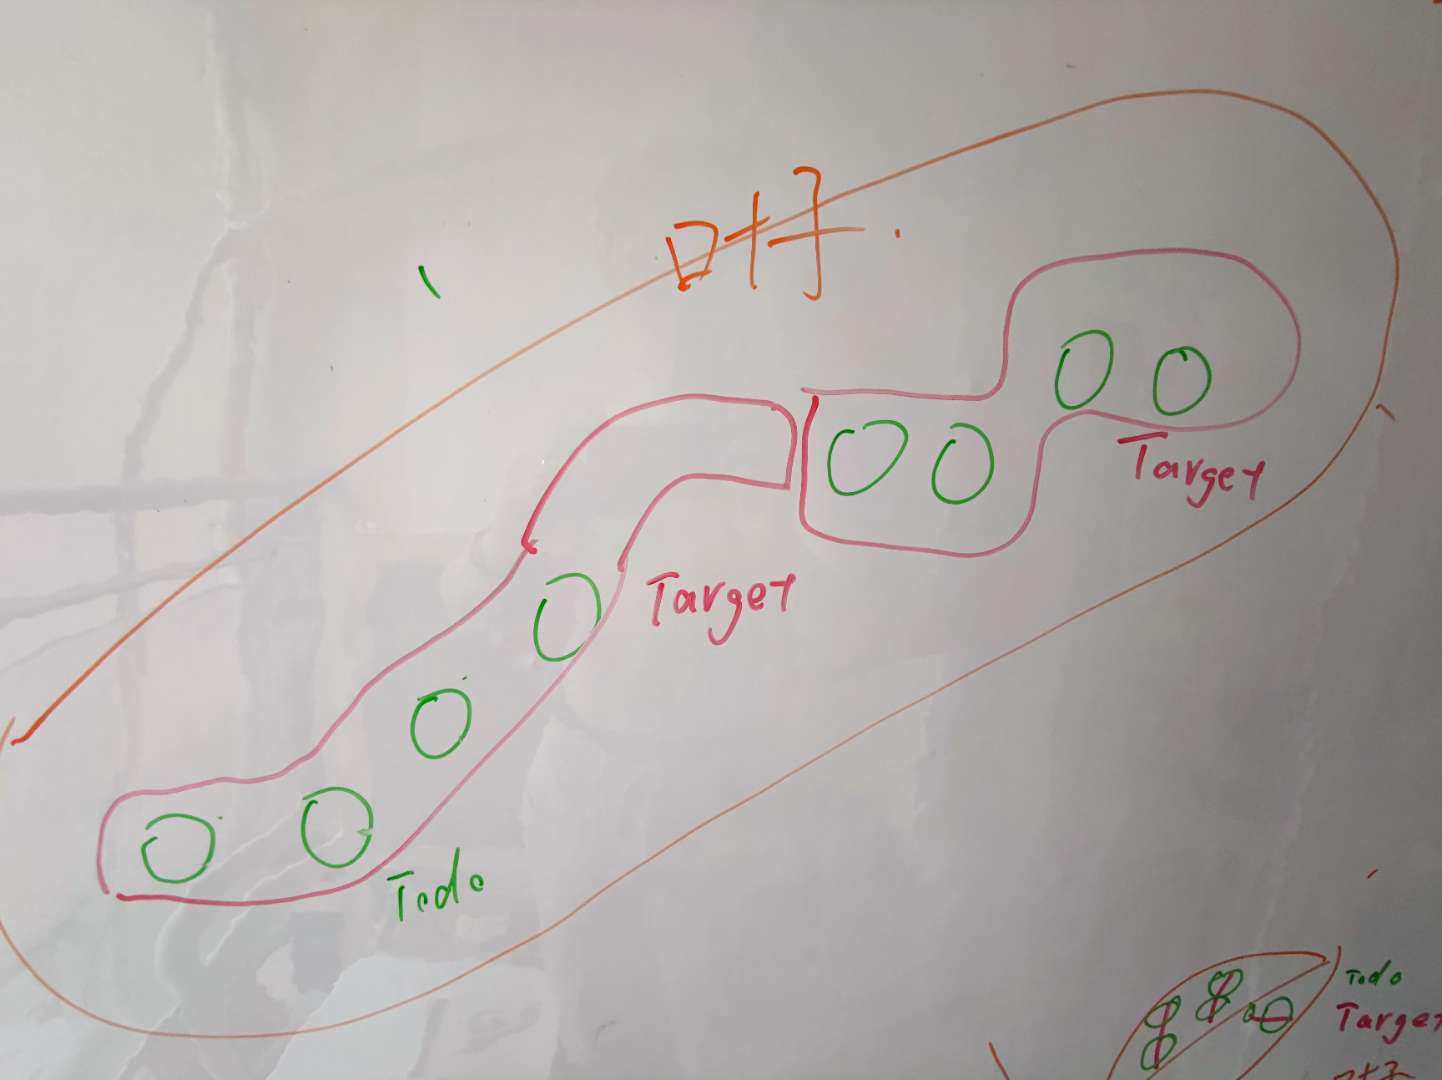 叶子
Target
Target
Todo
Todo
Target